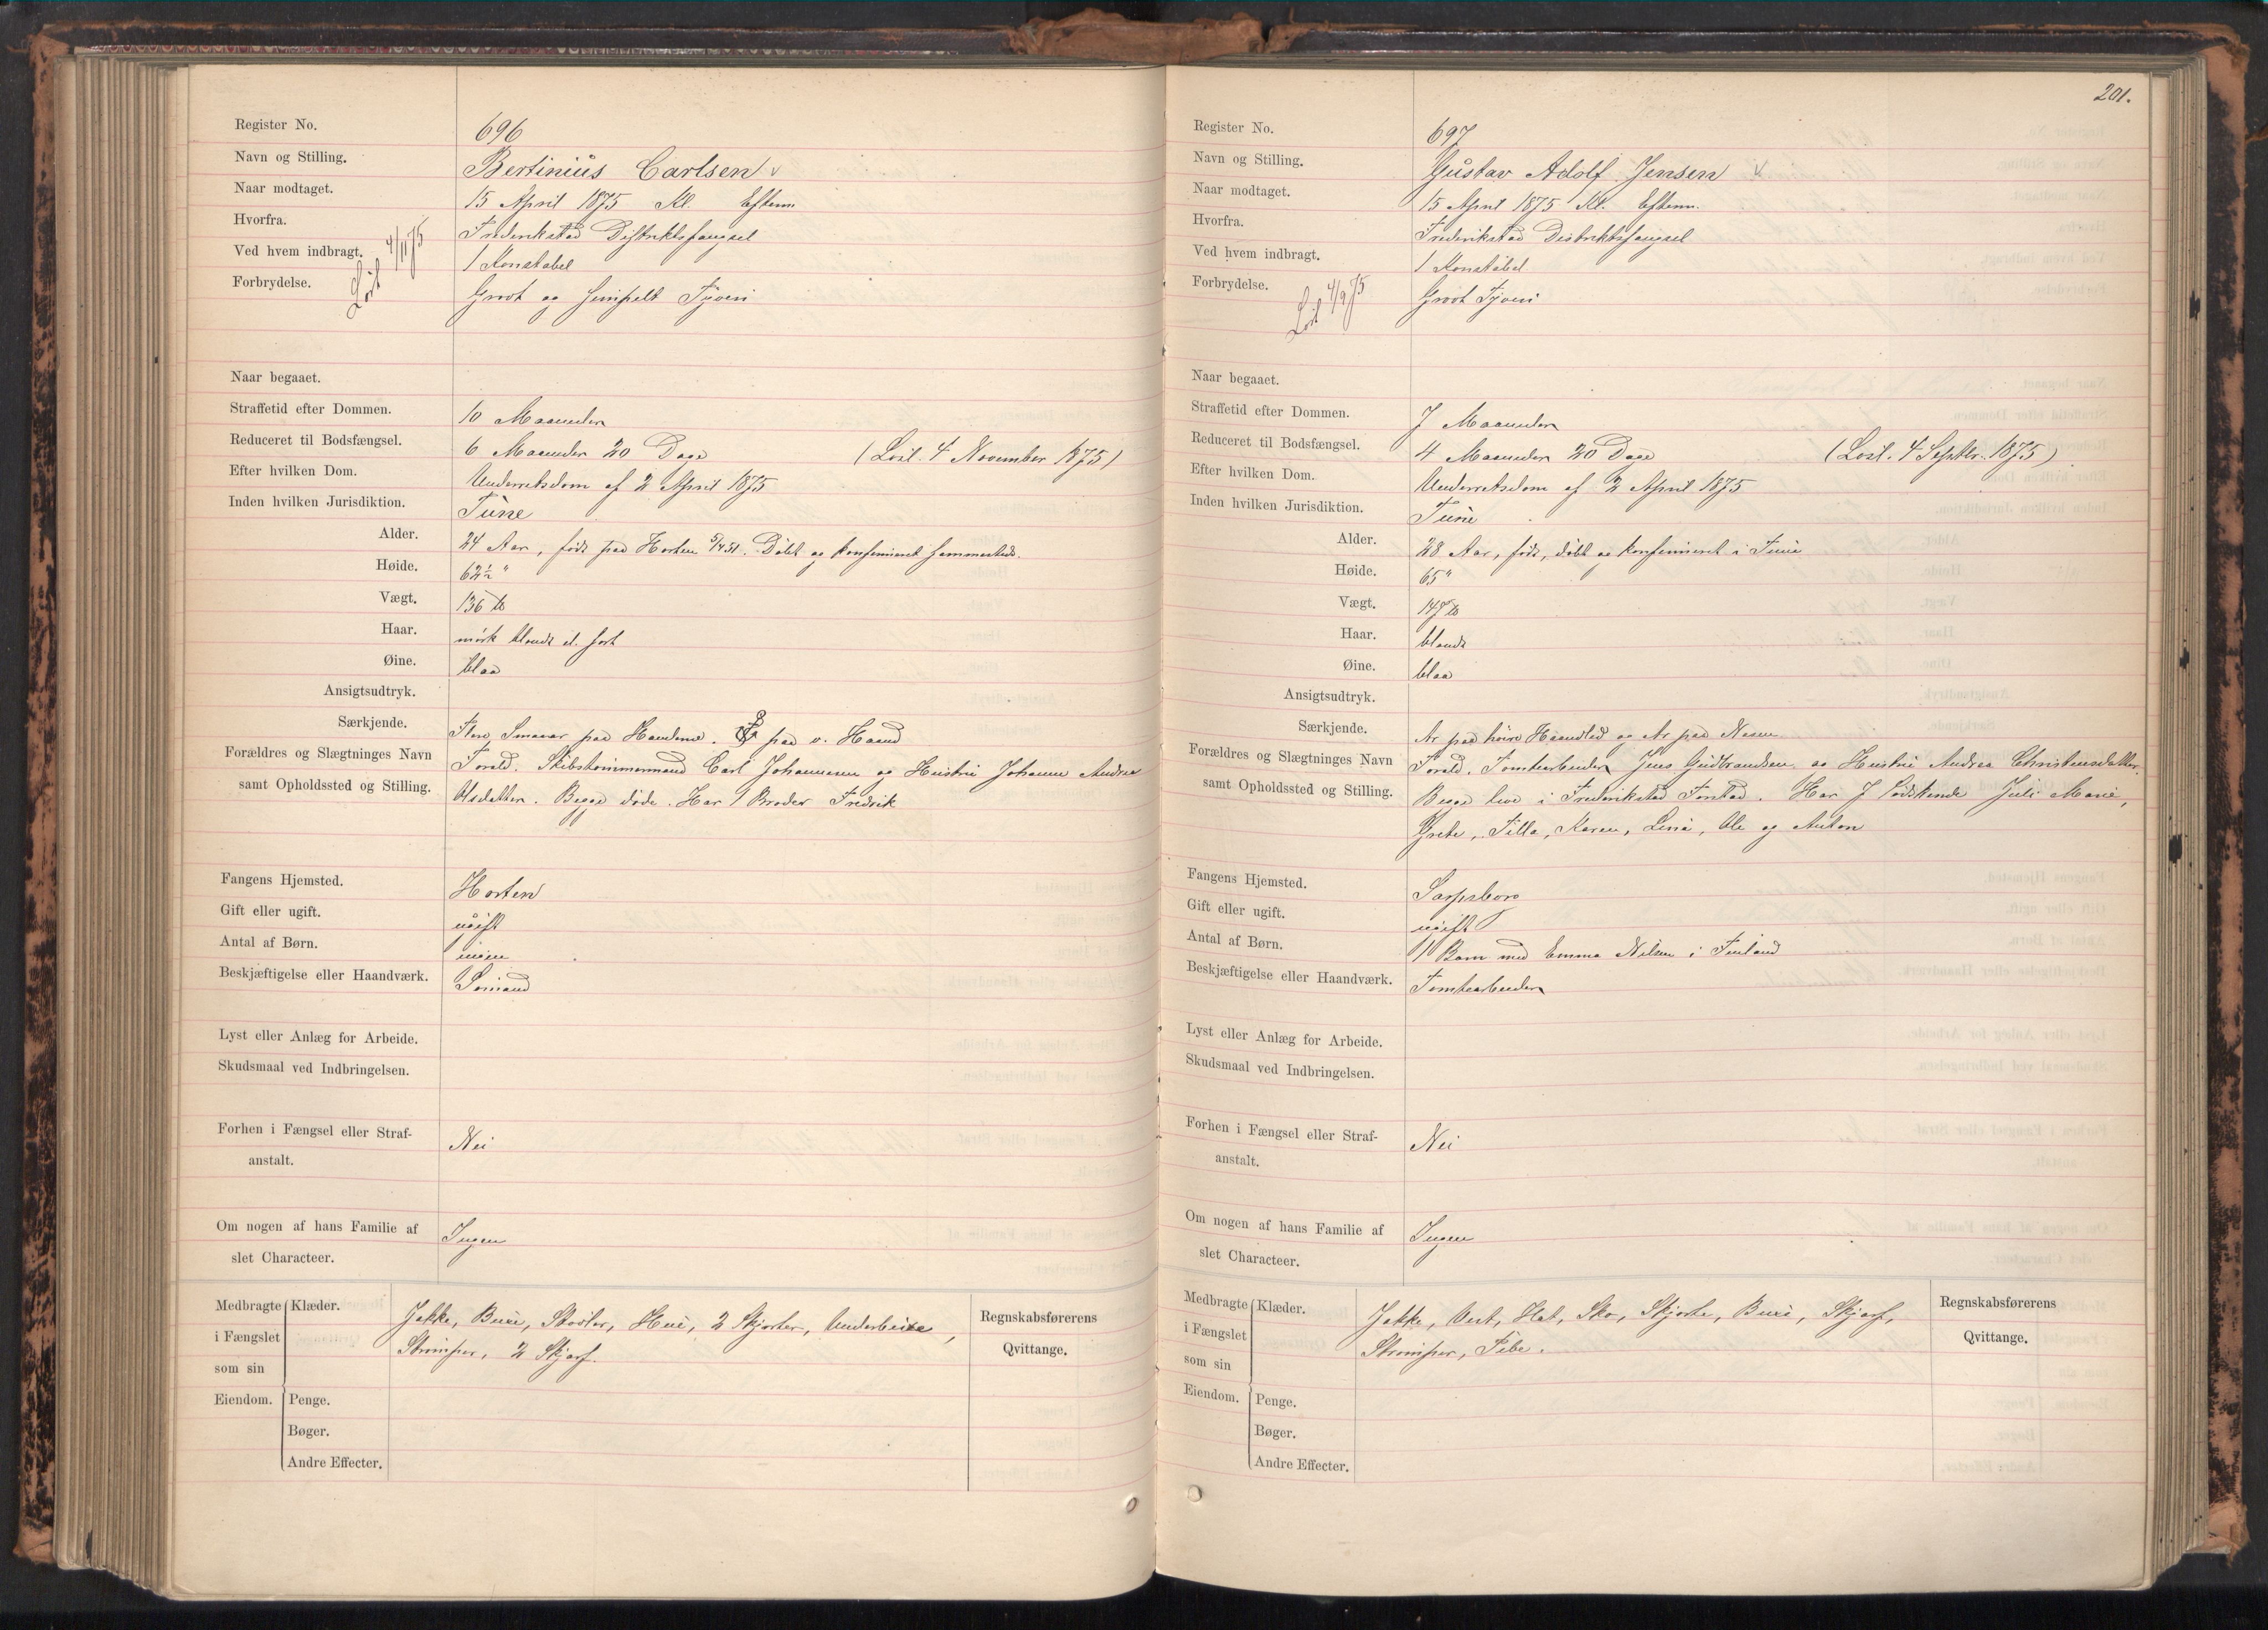 Register No. 696
Navn og Stilling. Bertinius Carlsen
Naar modtaget. 15 April 1875 Kl. Efterm
Hvorfra. Frederikstad Distriktsfængsel
Ved hvem indbragt. 1 Konstabel
Forbrydelse. Grovt og simpelt Tyveri
Løsl 4/11 75
Naar begaaet.
Straffetid efter Dommen. 10 Maaneder
Reduceret til Bodsfængsel. 6 Maaneder 20 Dage (Løsl. 4 November 1875)
Efter hvilken Dom. Underretsdom af 2 April 1875
Inden hvilken Jurisdiktion. Tune
Alder. 24 Aar, født paa Horten 5/4 51. Døbt og konfirmeret sammesteds.
Høide. 62½ "
Vægt. 136 ℔
Haar. mørk blondt el. sort
Øine. blaa
Ansigtsudtryk.
Særkjende. Flere Smaaar paa Hænderne. paa v. Haand
Forældres og Slægtninges Navn Foræld. Skibstømmermand Carl Johannesen og Hustru Johanne Andrea
samt Opholdssted og Stilling. Olsdatter. Begge døde. Har 1 Broder Fredrik
Fangens Hjemsted. Horten
Gift eller ugift. ugift
Antal af Børn. ingen
Beskjæftigelse eller Haandværk. Sømand
Lyst eller Anlæg for Arbeide.
Skudsmaal ved Indbringelsen.
Forhen i Fængsel eller Straf- Nei
anstalt.
Om nogen af hans Familie af Ingen
slet Characteer.
Medbragte Klæder. Jakke, Buxe, Støvler, Hue, 2 Skjorter, Underbuxe,
i Fængslet Strømper, 2 Skjærf.
som sin
Eiendom. Penge.
Bøger.
Andre Effecter.
Regnskabsførerens
Qvittange.
201.
Register No. 697
Navn og Stilling. Gustav Adolf Jensen
Naar modtaget. 15 April 1875 Kl. Efterm.
Hvorfra. Frederikstad Distriktsfængsel
Ved hvem indbragt. 1 Konstabel
Forbrydelse. Grovt Tyveri
Løsl 4/9 75
Naar begaaet.
Straffetid efter Dommen. 7 Maaneder
Reduceret til Bodsfængsel. 4 Maaneder 20 Dage (Løsl. 4 Septbr. 1875)
Efter hvilken Dom. Underretsdom af 2 April 1875
Inden hvilken Jurisdiktion. Tune
Alder. 28 Aar, født, døbt og konfirmeret i Tune
Høide. 65"
Vægt. 147 ℔
Haar. blondt
Øine. blaa
Ansigtsudtryk.
Særkjende. Ar paa høire Haandled og Ar paa Næsen
Forældres og Slægtninges Navn Foræld. Tomtearbeider Jens Gudbrandsen og Hustru Andrea Christensdatter.
samt Opholdssted og Stilling. Begge leve i Frederikstad Forstad. Har 7 Sødskende Juli Marie,
Grete, Tilla, Karen, Lina, Ole og Anton
Fangens Hjemsted. Sarpsborg
Gift eller ugift. ugift
Antal af Børn. 1 Barn med Emma Nilsen i Finland
Beskjæftigelse eller Haandværk. Tomtearbeider
Lyst eller Anlæg for Arbeide.
Skudsmaal ved Indbringelsen.
Forhen i Fængsel eller Straf- Nei
anstalt.
Om nogen af hans Familie af Ingen
slet Characteer.
Medbragte Klæder. Jakke, Vest, Hat, Sko, Skjorte, Buxe, Skjærf,
i Fængslet Strømper, Pibe.
som sin
Eiendom. Penge.
Bøger.
Andre Effecter.
Regnskabsførerens
Qvittange.